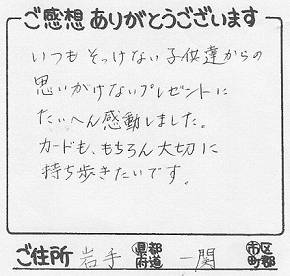 ご感想ありがとうございます
いつもそっけない子供達からの
思いがけないプレゼントに
たいへん感動しました。
カードも、もちろん大切に
持ち歩きたいです。
ご住所 岩手 県都府道 一関 市区町郡